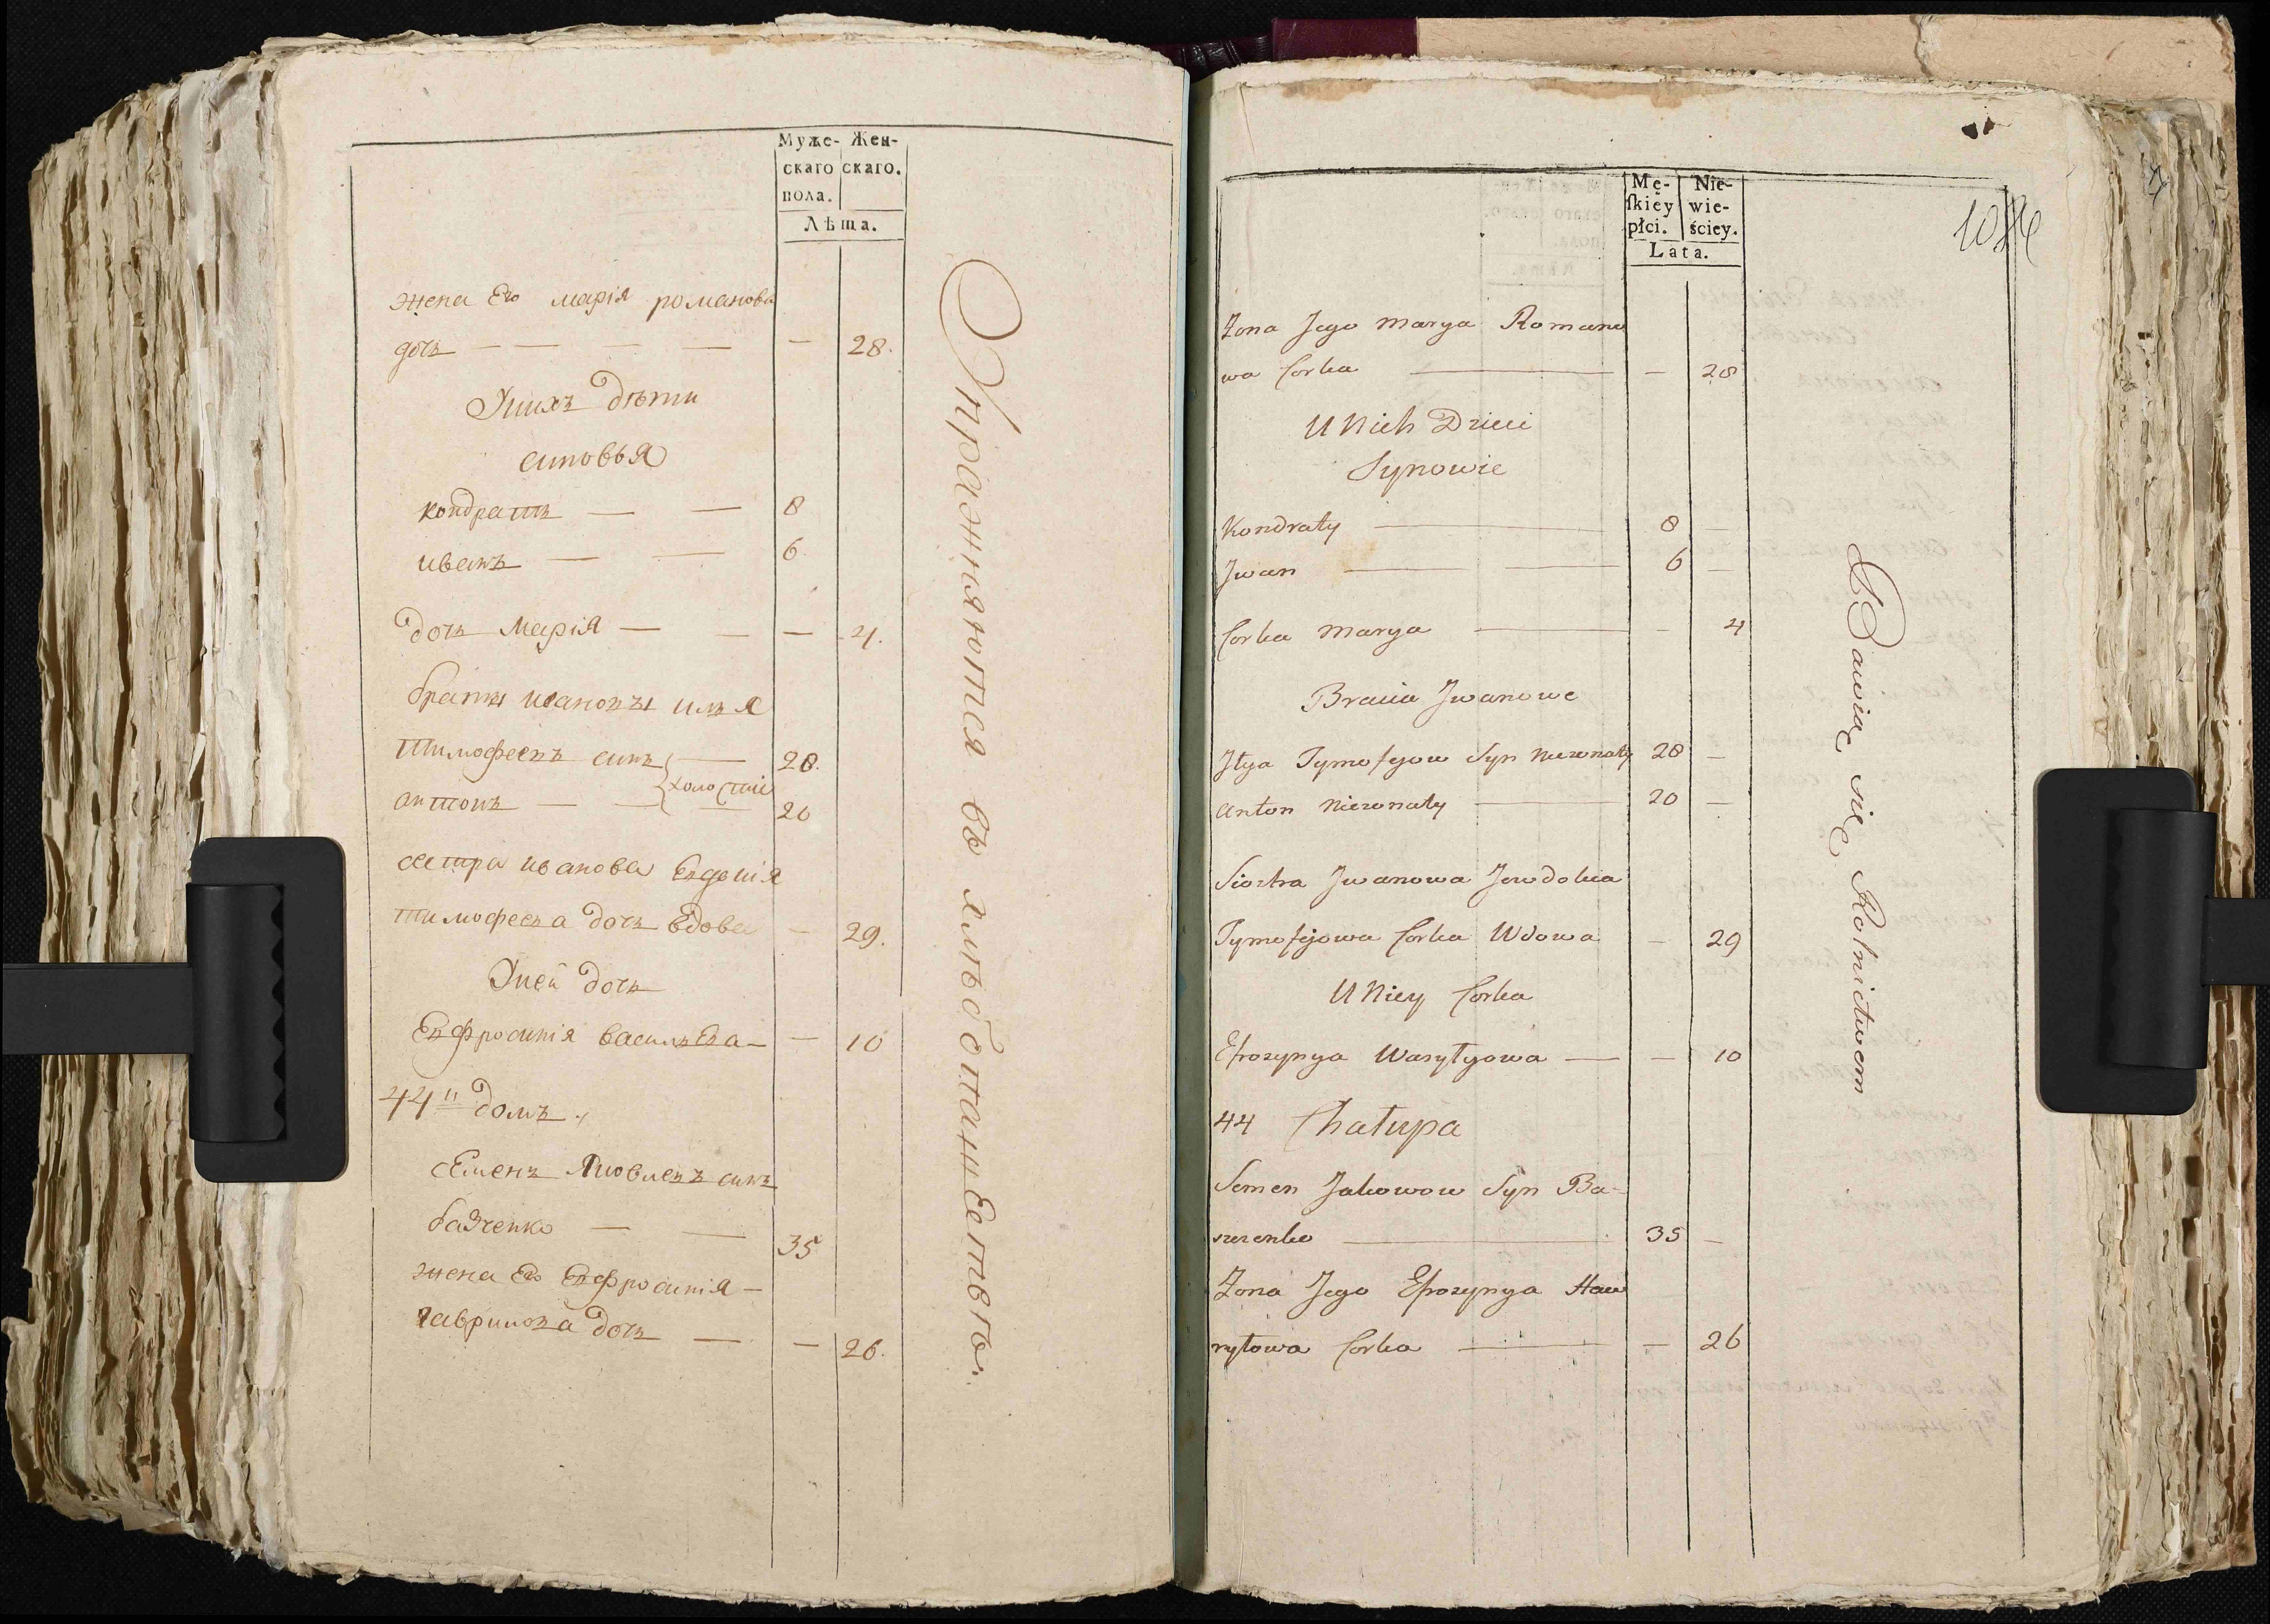 Муже- Жен-
скаго скаго.
пола.
Лѣта.
жена Его марія романова
дочь — — — — — 28.
Унихъ дѣти
синовья
кондратъ — — 8
иванъ — — 6.
дочь марія — — — 4.
братьи ивановы илья
тимофеевъ синъ — 28.
холостіе
антонъ — — — 20
сестра иванова Евдокія
тимофеева дочь вдова — 29.
Уней дочь
Евфросинія васильева — — 10
44й домъ.
семенъ яковлевъ синъ
базченко — — 35
жена Его Евфросинія —
гаврилова дочь — — 26.
Упражняются въ хлѣбопашествѣ.
Mę- Nie-
ſkiey wie-
płci. ściey.
Lata.
Zona Jego Marya Romano
wa Corka — — 28
U Nich Dzieci
Synowie
Kondraty — 8 —
Jwan — — 6 —
Corka Marya — — 4
Bracia Jwanowe
Jłya Tymofyow Syn Niezonaty 28 —
Anton Niezonaty — 20 —
Siostra Jwanowa Jewdokia
Tymofyjowa Corka Wdowa — 29
U Niey Corka
Efrozynya Wasylyowa — — 10
44 Chałupa
Semen Jakowow Syn Ba-
szczenko — 35 —
Zona Jego Efrozynya Haw
ryłowa Corka — — 26
Bawią się Rolnictwem